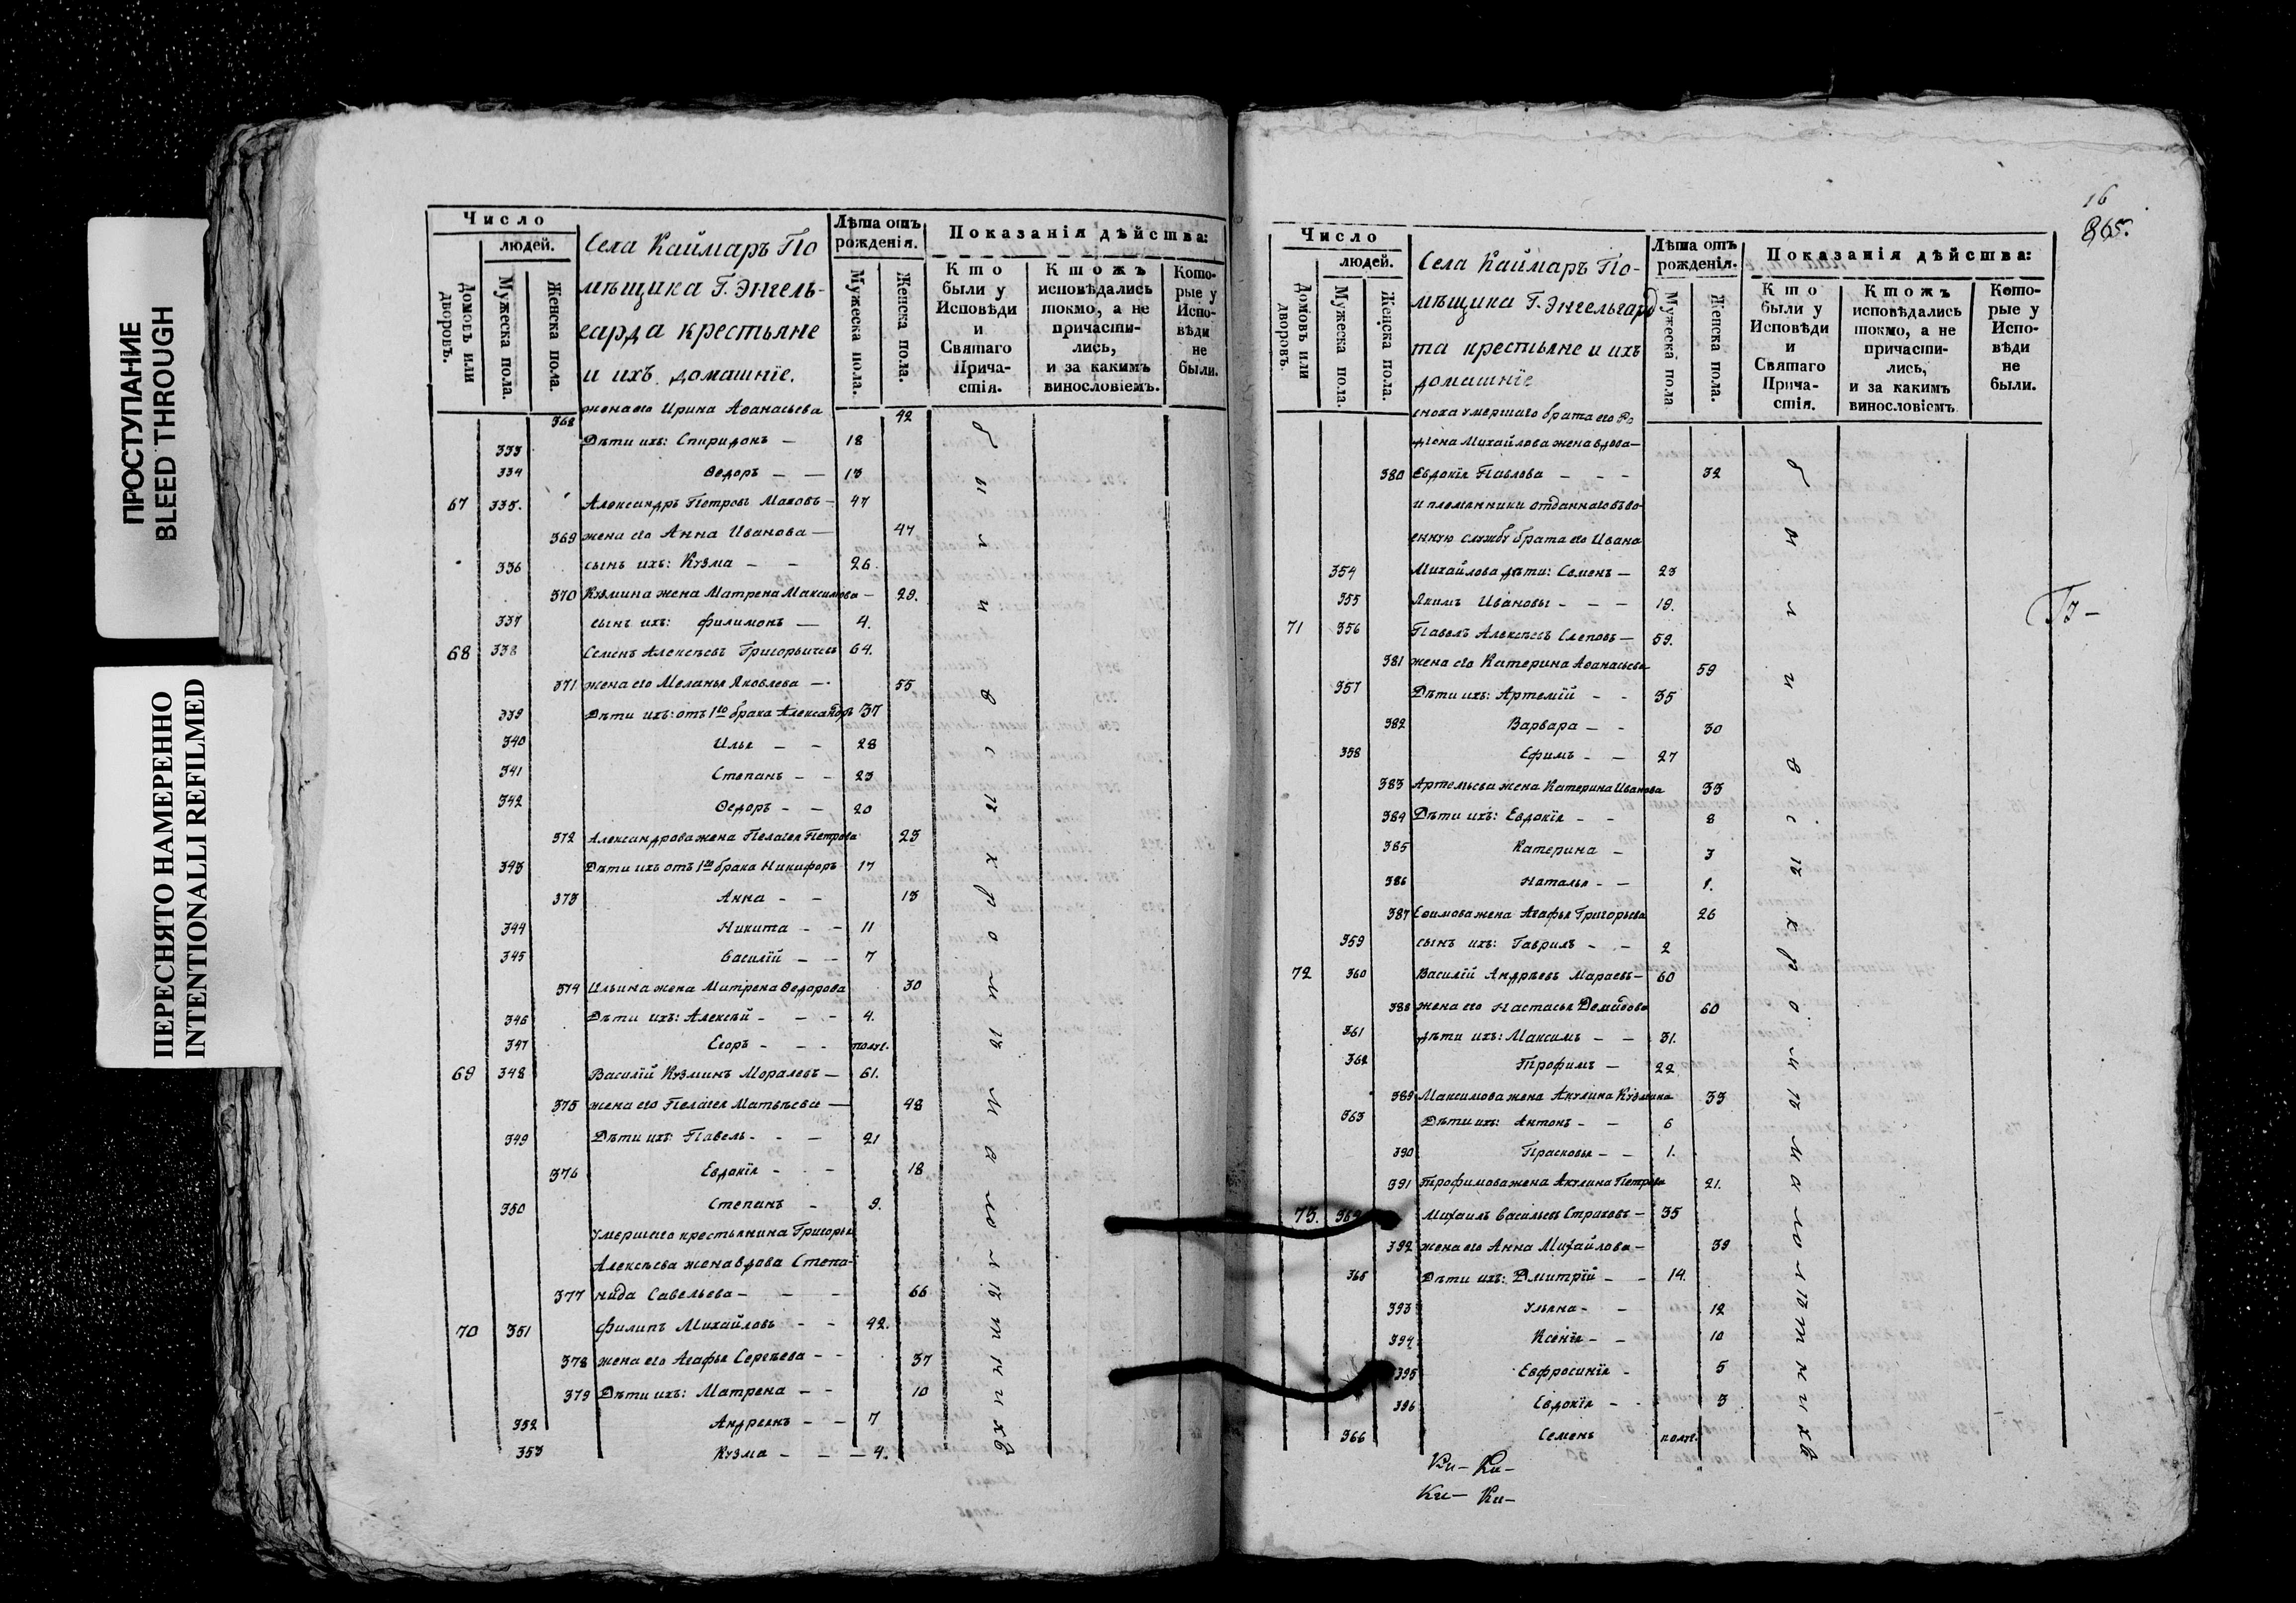 ПРОСТУПАНИЕ
BLEED THROUGH
ПЕРЕСНЯТО НАМЕРЕННО
INTENTIONALLI REFILMED
Число
людей.
Домовъ или дворовъ.
Мужеска пола.
Женска пола.
Села Каймаръ По
мѣщика Г. Энгель-
гарда крестьяне
и ихъ домашнїе.
Лѣта отъ рожденія.
Мужеска пола.
Женска пола.
Показанія дѣйства:
Кто были у Исповѣди и Святаго Прича-стія.
Ктожъ исповѣдались токмо, а не причасти-лись, и за какимъ винословіемъ.
Кото-рые у Испо-вѣди не были.
368 жена его Ирина Аѳанасьева 42
333 Дѣти ихъ: Спиридонъ — 18
334 Ѳедоръ — — 13
67 335. Александръ Петровъ Маховъ — 47
369 жена его Анна Иванова — 47
336 сынъ ихъ: Кузма — — 26
370 Кузмина жена Матрена Максимова — 29.
337 сынъ ихъ: Филимонъ — 4.
68 338 Семенъ Алексѣевъ Григорьичевъ 64.
371 жена его Меланья Яковлева — 55
339 Дѣти ихъ: отъ 1го брака Александръ 37
340 Илья — — 28
341 Степанъ — — 23
342 Ѳедоръ — — 20
372 Александрова жена Пелагея Петрова 23
343 Дѣти ихъ отъ 1го брака Никифоръ 17
373 Анна — — 13
344 Никита — — 11
345 Василїй — — 7
374 Ильина жена Матрена Ѳедорова 30
346 Дѣти ихъ: Алексѣй — — — 4.
347 Егоръ — — — полг.
69 348 Василїй Кузминъ Моралевъ — 61.
375 жена его Пелагея Матвѣева — 48
349 Дѣти ихъ: Павелъ — — — 21
376 Евдокїя — — 18
350 Степанъ — 9.
умершего крестьянина Григорья
Алексѣева жена вдова Степа-
377 нида Савельева — — — 66
70 351 Филипъ Михайловъ — — 42.
378 жена его Агафья Сергѣева — — 37
379 Дѣти ихъ: Матрена — — 10
352 Андреянъ — — 7
353 Кузма — — — 4.
были в с ѣ к р о м ѣ м а л о л ѣ т н и х ъ
16
865.
Число
людей.
Домовъ или дворовъ.
Мужеска пола.
Женска пола.
Села Каймаръ По-
мѣщика Г. Энгельгард
та крестьяне и ихъ
домашнїе
Лѣта отъ рожденія.
Мужеска пола
Женска пола.
Показанія дѣйства:
Кто были у Исповѣди и Святаго Прича-стія.
Ктожъ исповѣдались токмо, а не причасти-лись, и за какимъ винословіемъ
Кото-рые у Испо-вѣди не были.
сноха умершаго брата его Ро
дїона Михайлова жена вдова —
380 Евдокїя Павлова — — — 32
и племянники отданнаго въ во-
енную службу брата его Ивана
354 Михайлова дѣти: Семенъ — 23
355 Якимъ Ивановы — — — 19.
71 356 Павелъ Алексѣевъ Слеповъ — 59.
381 жена его Катерина Аѳанасьева 59
357 Дѣти ихъ: Артемїй — — 35
382 Варвара — — 30
358 Ефимъ — — 27
383 Артемьева жена Катерина Иванова 33
384 Дѣти ихъ: Евдокїя — — 8
385 Катерина — 3
386 Наталья — — 1.
387 Ефимова жена Агафья Григорьева 26
359 сынъ ихъ: Гаврилъ — — 2
72 360 Василїй Андрѣевъ Мараевъ — 60
388 жена его Настасья Демидова 60
361 дѣти ихъ: Максимъ — — 31.
362 Трофимъ — 22
389 Максимова жена Акулина Кузмина 33
363 Дѣти ихъ: Антонъ — — 6
390 Прасковья — — 1.
391 Трофимова жена Акулина Петрова 21.
73. 364 Михаилъ Васильевъ Страховъ — 35
392 жена его Анна Михайлова — 39
365 Дѣти ихъ: Дмитрїй — — 14.
393 Ульяна — — 12
394 Ксенїя — — 10
395 Евфросинїя — 5
396 Евдокїя — — 3
366 Семенъ полг.
были в с ѣ к р о м ѣ м а л о л ѣ т н и х ъ
Ки — Ки —
Ки — Ки —